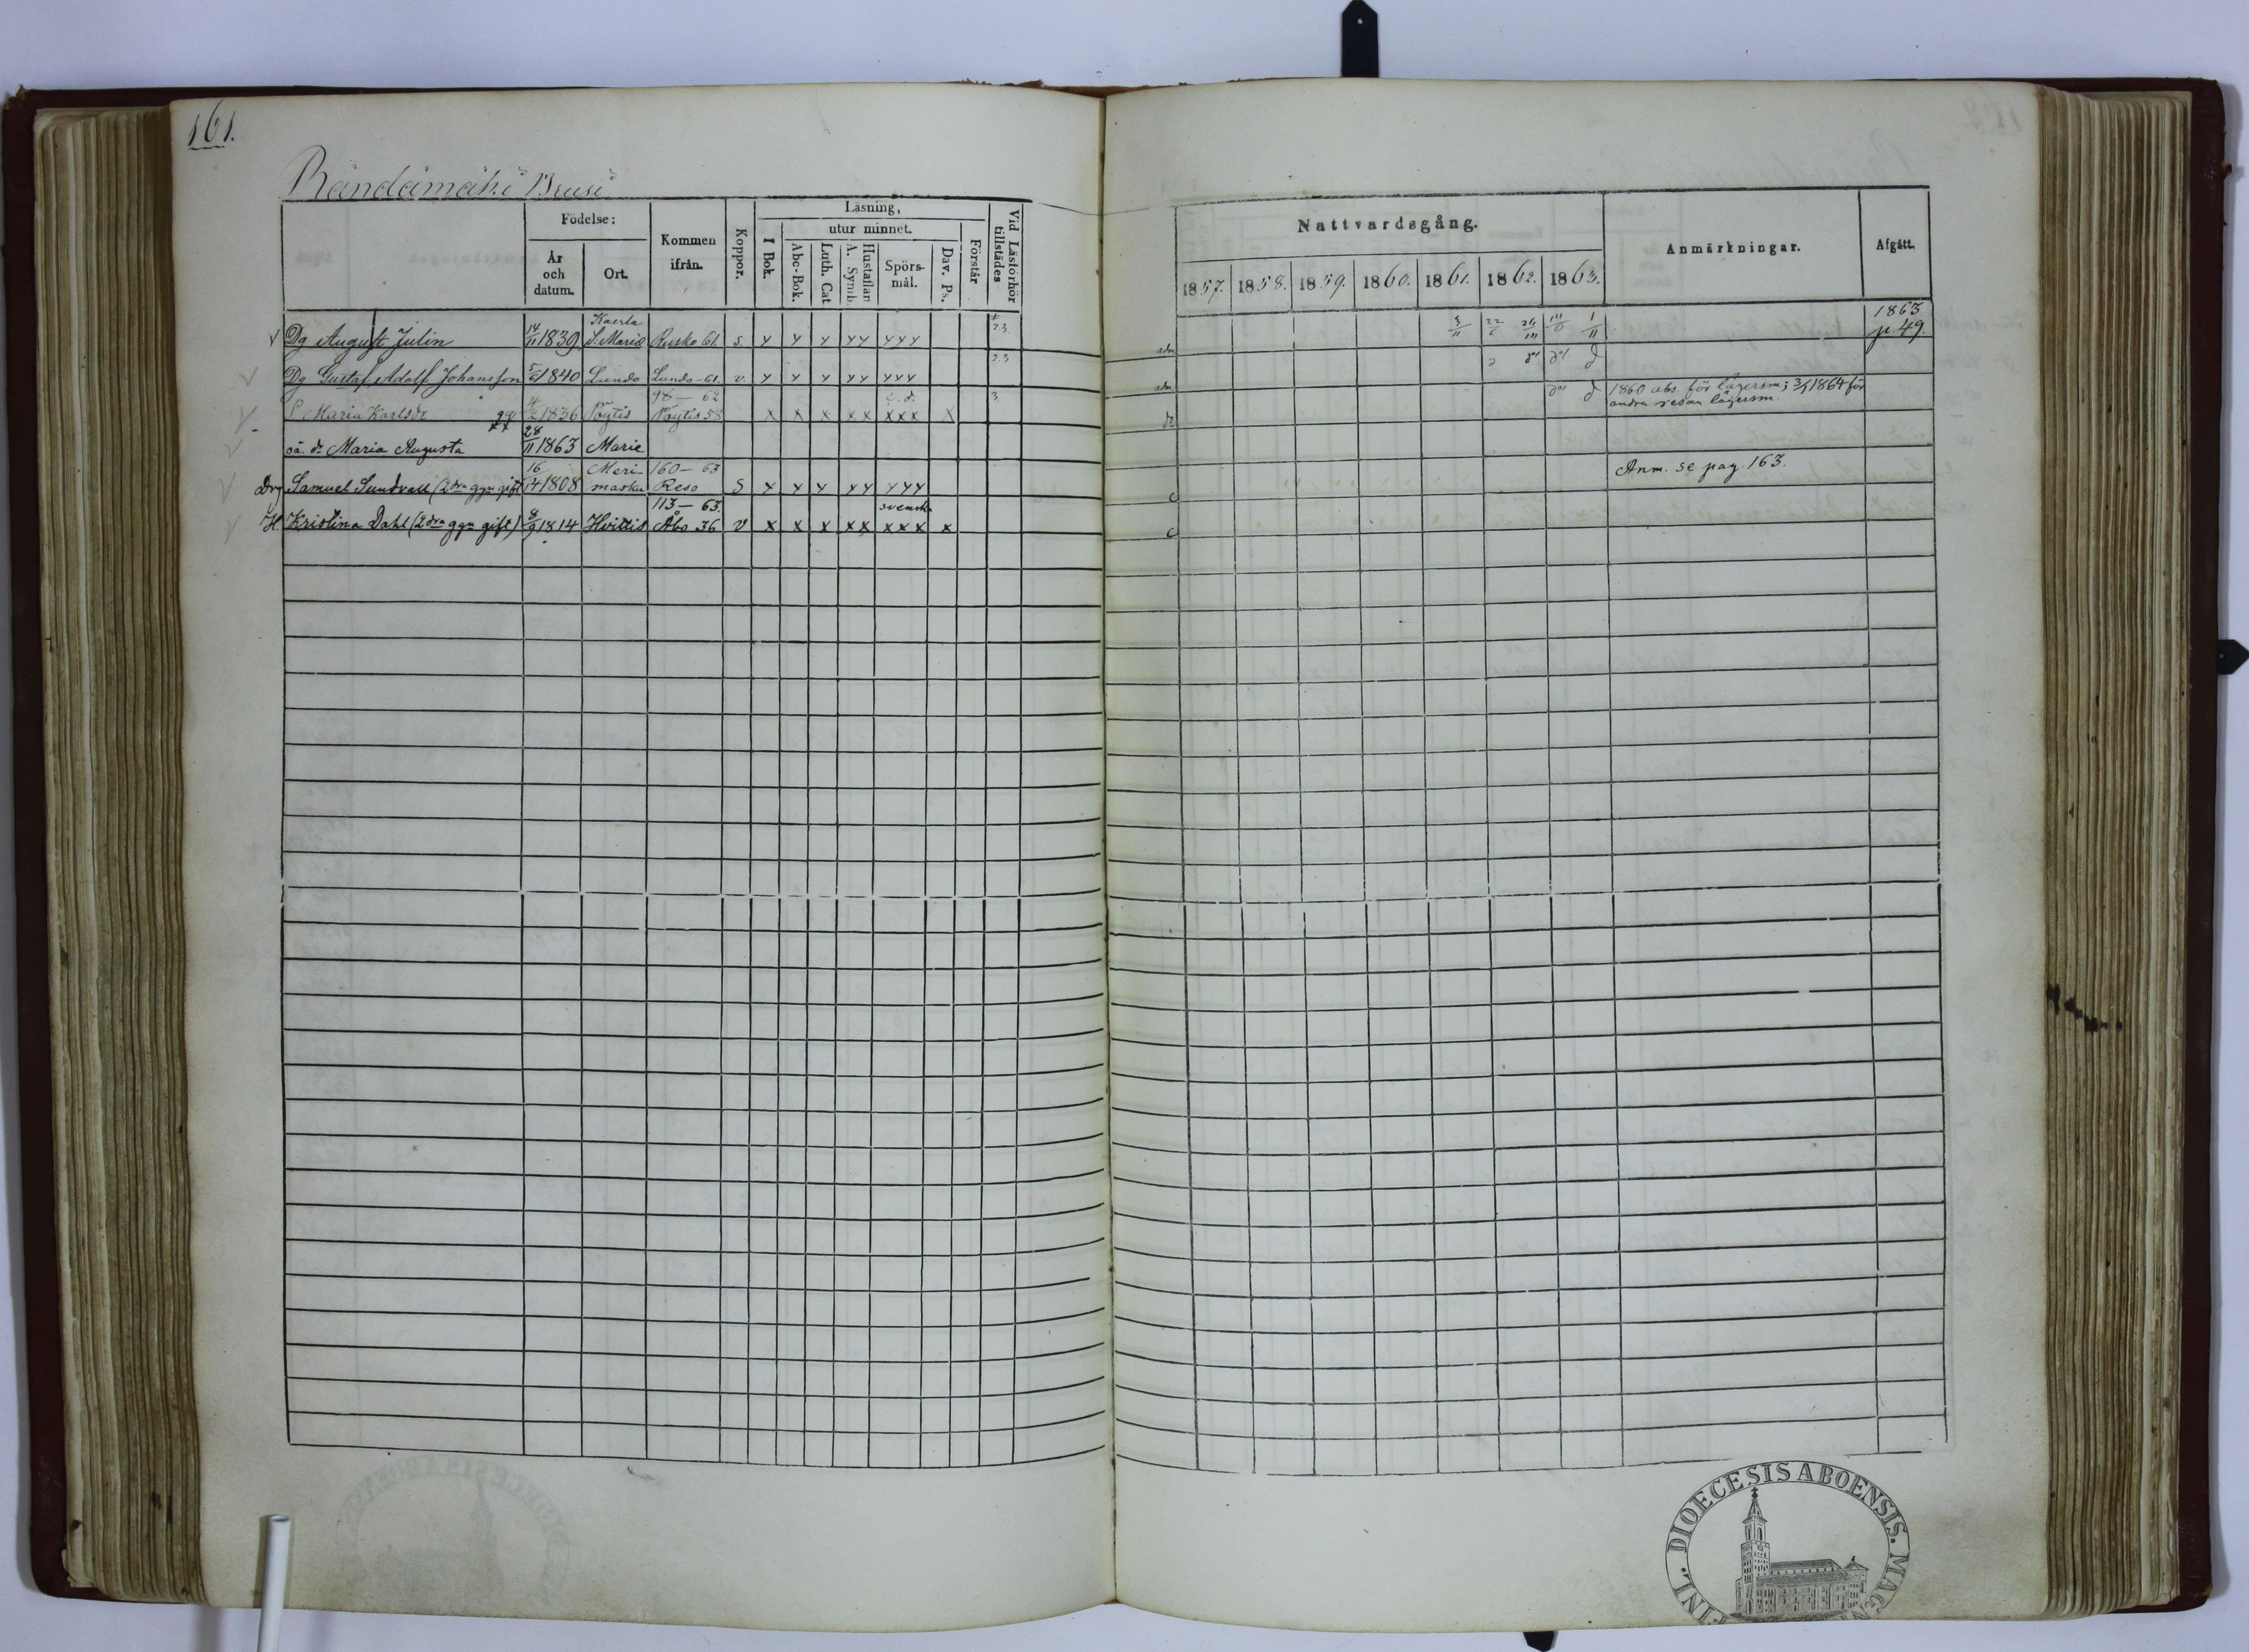 161.
Rändämäki Brusi
Födelse:
År och datum.
Ort.
Kommen ifrån.
Koppor.
Läsning,
I Bok.
utur minnet.
Abc-Bok.
Luth. Cat
A. Symb.
Hustaflan
Spörs-mål.
Dav. Ps.
Förstår
Vid Läsförhör tillstädes
Nattvardsgång.
1857. 1858. 1859. 1860. 1861. 1862. 1863.
Anmärkningar.
Afgått.
Dg August Julin 14/11 1839 Kaerla S:t Marie Rusko 61. s. y y y yy yyy 2.3. 3/11 1/11 1863 p 49.
adm
Dg Gustaf Adolf Johansson 5/6 1840 Lundo Lundo - 61. v. y y y yy yyy 2.3
adm
P Maria Karlsdr 4/2 1836 Pöytis 98 - 62 Pöytis 58 x x x xx xxx x 3 1860 abs. för lägersm; 3/1 1864 för
andra resan lägersm.
oä. dr Maria Augusta 28/11 1863 Marie
Drg Samuel Sundvall (2dra ggn gift) 16/ 1808 Merimasku 160 - 63 Reso s y y y yy yyy c Anm. se pag. 163.
H. Kristina Dahl (2dra ggn gift) 8/9 1814 Hvittis 113 - 63. Åbo 36 v x x x xx svensk xxx x c
DIOECESIS ABOENSIS. MAGNI
FINL.